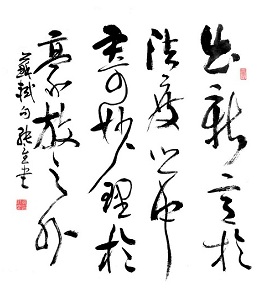 出新意於
法度之中
寄妙理於
豪放之外
蘇軾句 書